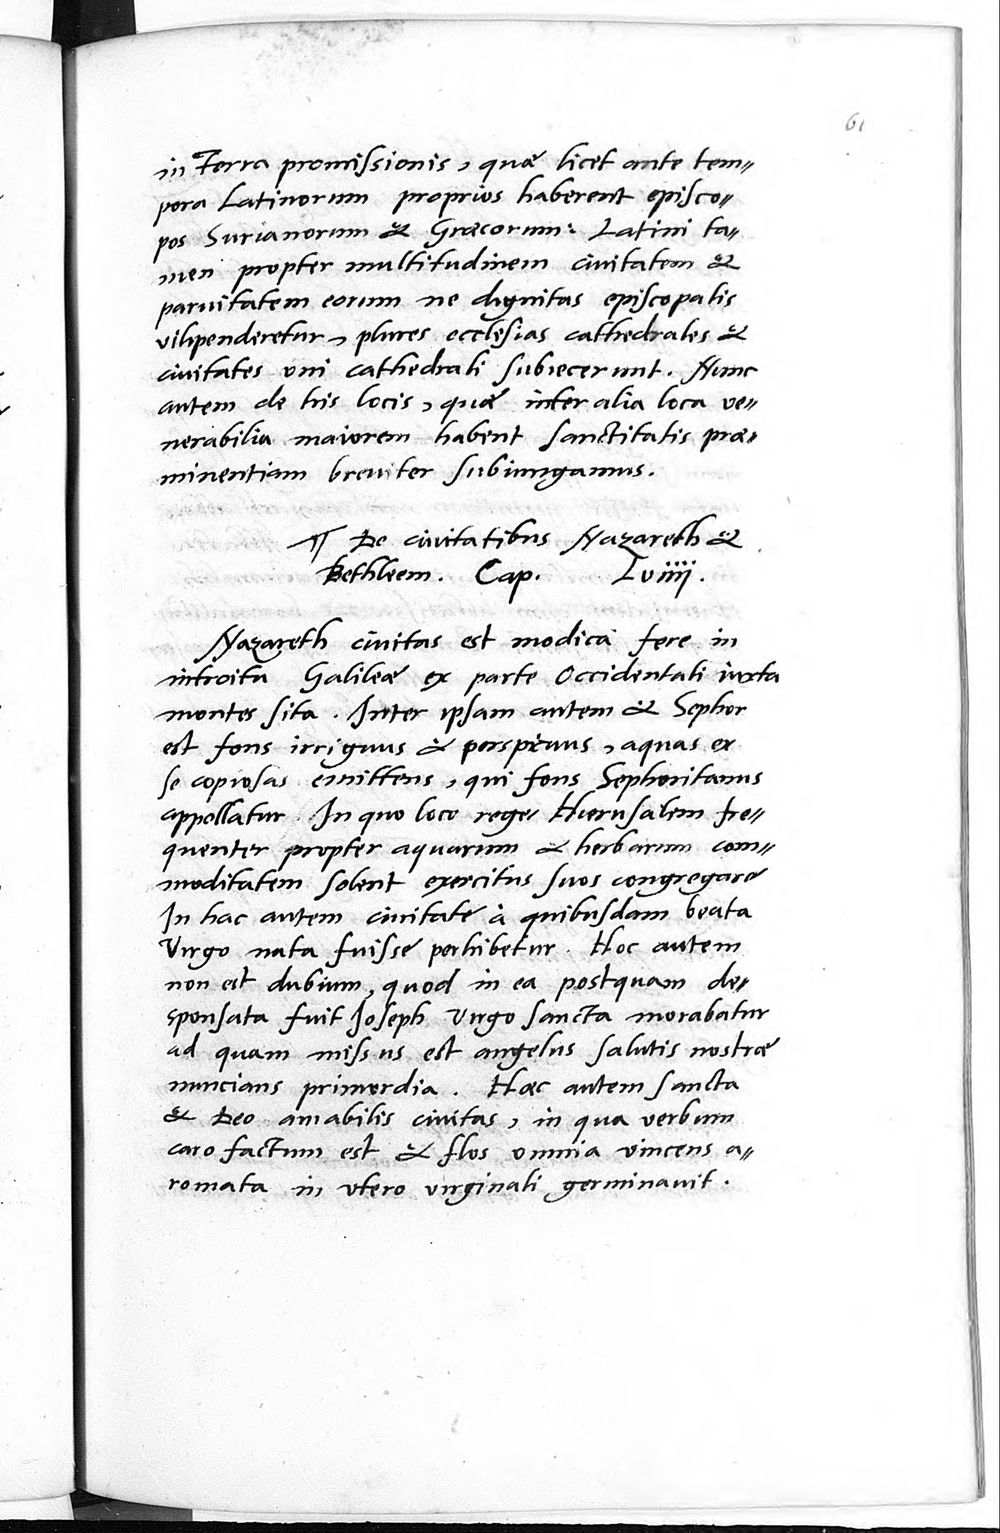 61
in Terra promiſsionis, quæ licet ante tem„
pora Latinorum proprios haberent epiſco„
pos Surianorum & Græcorum: Latini ta„
men propter multitudinem ciuitatem &
paruitatem eorum ne dignitas epiſcopalis
vilipenderetur, plures eccleſias cathedrales &
ciuitates vni cathedrali ſubiecerunt. Nunc
autem de his locis, quæ inter alia loca ve„
nerabilia maiorem habent ſanctitatis præ„
minentiam breuiter ſubiungamus.
¶ De ciuitatibus Nazareth &
Bethleem. Cap. Lviiij.
Nazareth ciuitas est modica fere in
introitu Galileæ ex parte Occidentali iuxta
montes ſita. Inter ipſam autem & Sephor
est fons irriguus & perspicuus, aquas ex
ſe copioſas emittens, qui fons Sephoritanus
appellatur. In quo loco reges Hieruſalem fre„
quenter propter aquarum & herbarum com„
moditatem ſolent exercitus ſuos congregare
In hac autem ciuitate à quibuſdam beata
Virgo nata fuiſse perhibetur. Hoc autem
non est dubium, quod in ea postquam de„
sponſata fuit Ioſeph Virgo ſancta morabatur
ad quam miſsus est angelus ſalutis nostræ
nuncians primordia. Hæc autem ſancta
& Deo amabilis ciuitas, in qua verbum
caro factum est & flos omnia vincens a„
romata in vtero virginali germinauit.